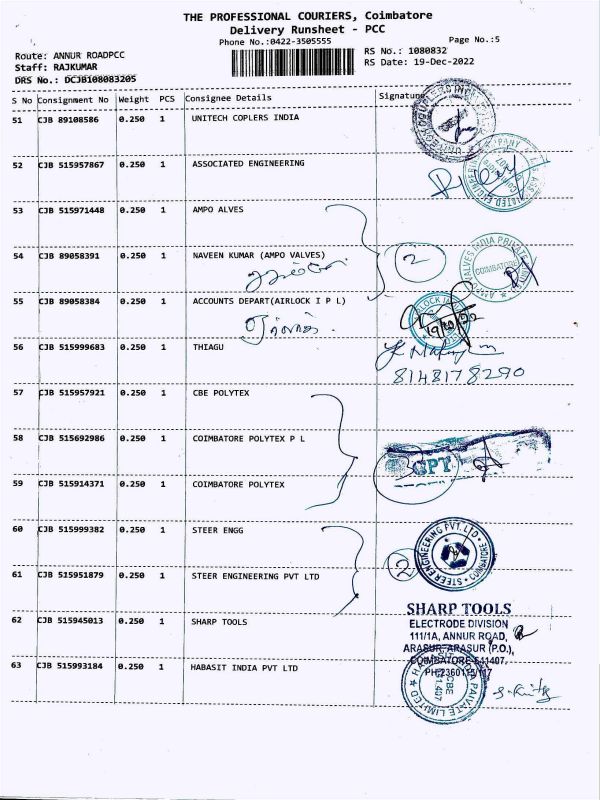 THE PROFESSIONAL COURIERS, Coimbatore
Delivery Runsheet - PCC
Phone No.:0422-3505555
Page No.:5
Route: ANNUR ROADPCC
RS No.: 1080832
Staff: RAJKUMAR
RS Date: 19-Dec-2022
DRS No.: DCJB108083205
S No Consignment No Weight PCS Consignee Details Signature
51 CJB 89108586 0.250 1 UNITECH COPLERS INDIA
52 CJB 515957867 0.250 1 ASSOCIATED ENGINEERING
53 CJB 515971448 0.250 1 AMPO ALVES
54 CJB 89058391 0.250 1 NAVEEN KUMAR (AMPO VALVES)
2
AMPO VALVES INDIA PRIVATE LIMITED
COIMBATORE
55 CJB 89058384 0.250 1 ACCOUNTS DEPART(AIRLOCK I P L)
56 CJB 515999683 0.250 1 THIAGU
8148178290
57 CJB 515957921 0.250 1 CBE POLYTEX
58 CJB 515692986 0.250 1 COIMBATORE POLYTEX P L
3
CPT
59 CJB 515914371 0.250 1 COIMBATORE POLYTEX
60 CJB 515999382 0.250 1 STEER ENGG
61 CJB 515951879 0.250 1 STEER ENGINEERING PVT LTD
2
STEER ENGINEERING PVT. LTD.
COIMBATORE
62 CJB 515945013 0.250 1 SHARP TOOLS
SHARP TOOLS
ELECTRODE DIVISION
111/1A, ANNUR ROAD,
ARASUR, ARASUR (P.O.),
COIMBATORE-641407.
63 CJB 515993184 0.250 1 HABASIT INDIA PVT LTD
HABASIT INDIA PRIVATE LIMITED
CBE
641 407